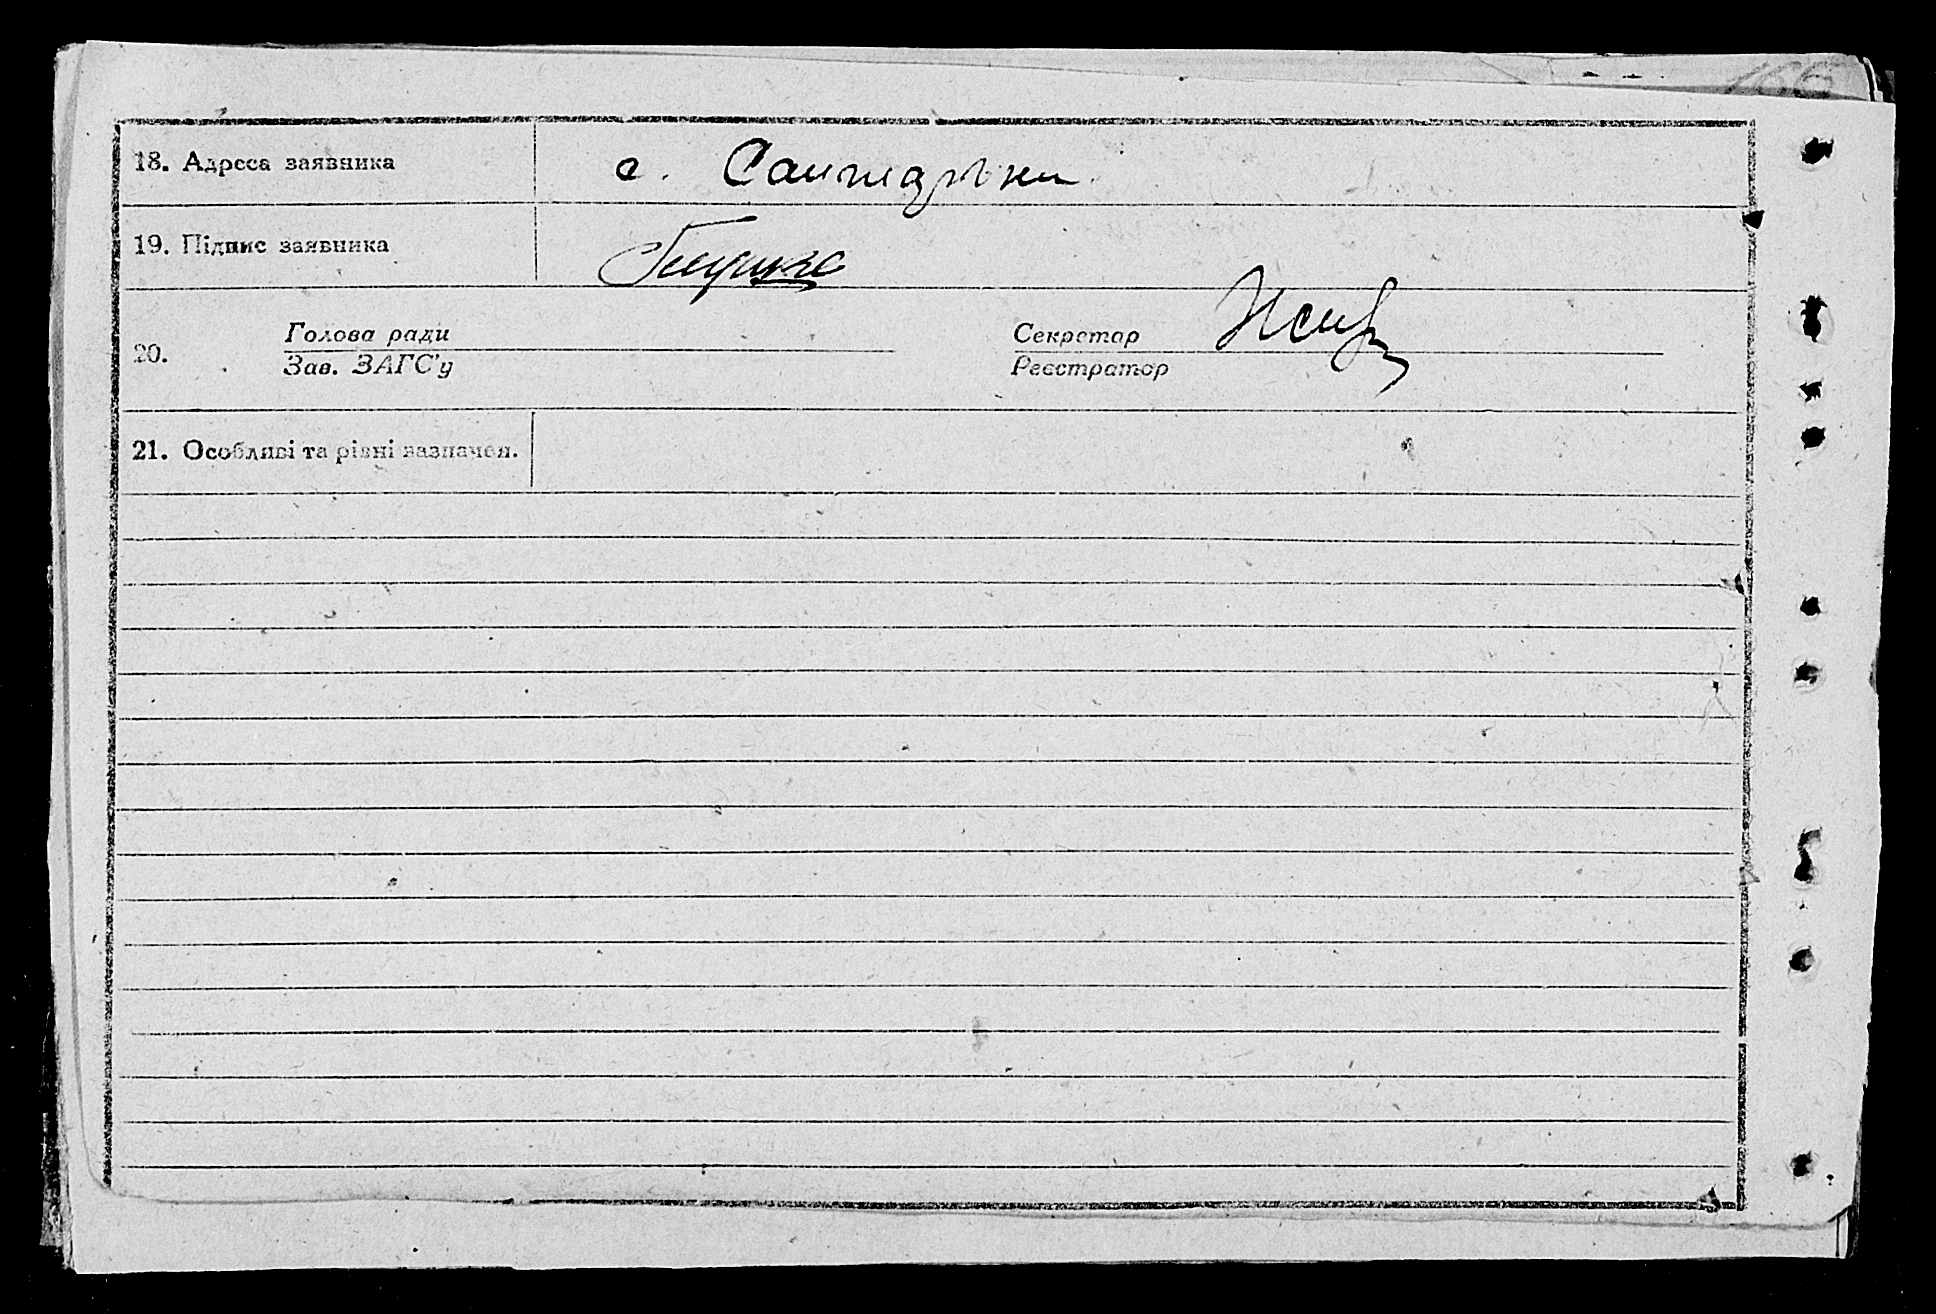 18. Адреса заявника с. Сантарки
19. Підпис заявника
20. Голова ради Секретар
Зав. ЗАГС'у Реєстратор
21. Особливі та різні зазначен.